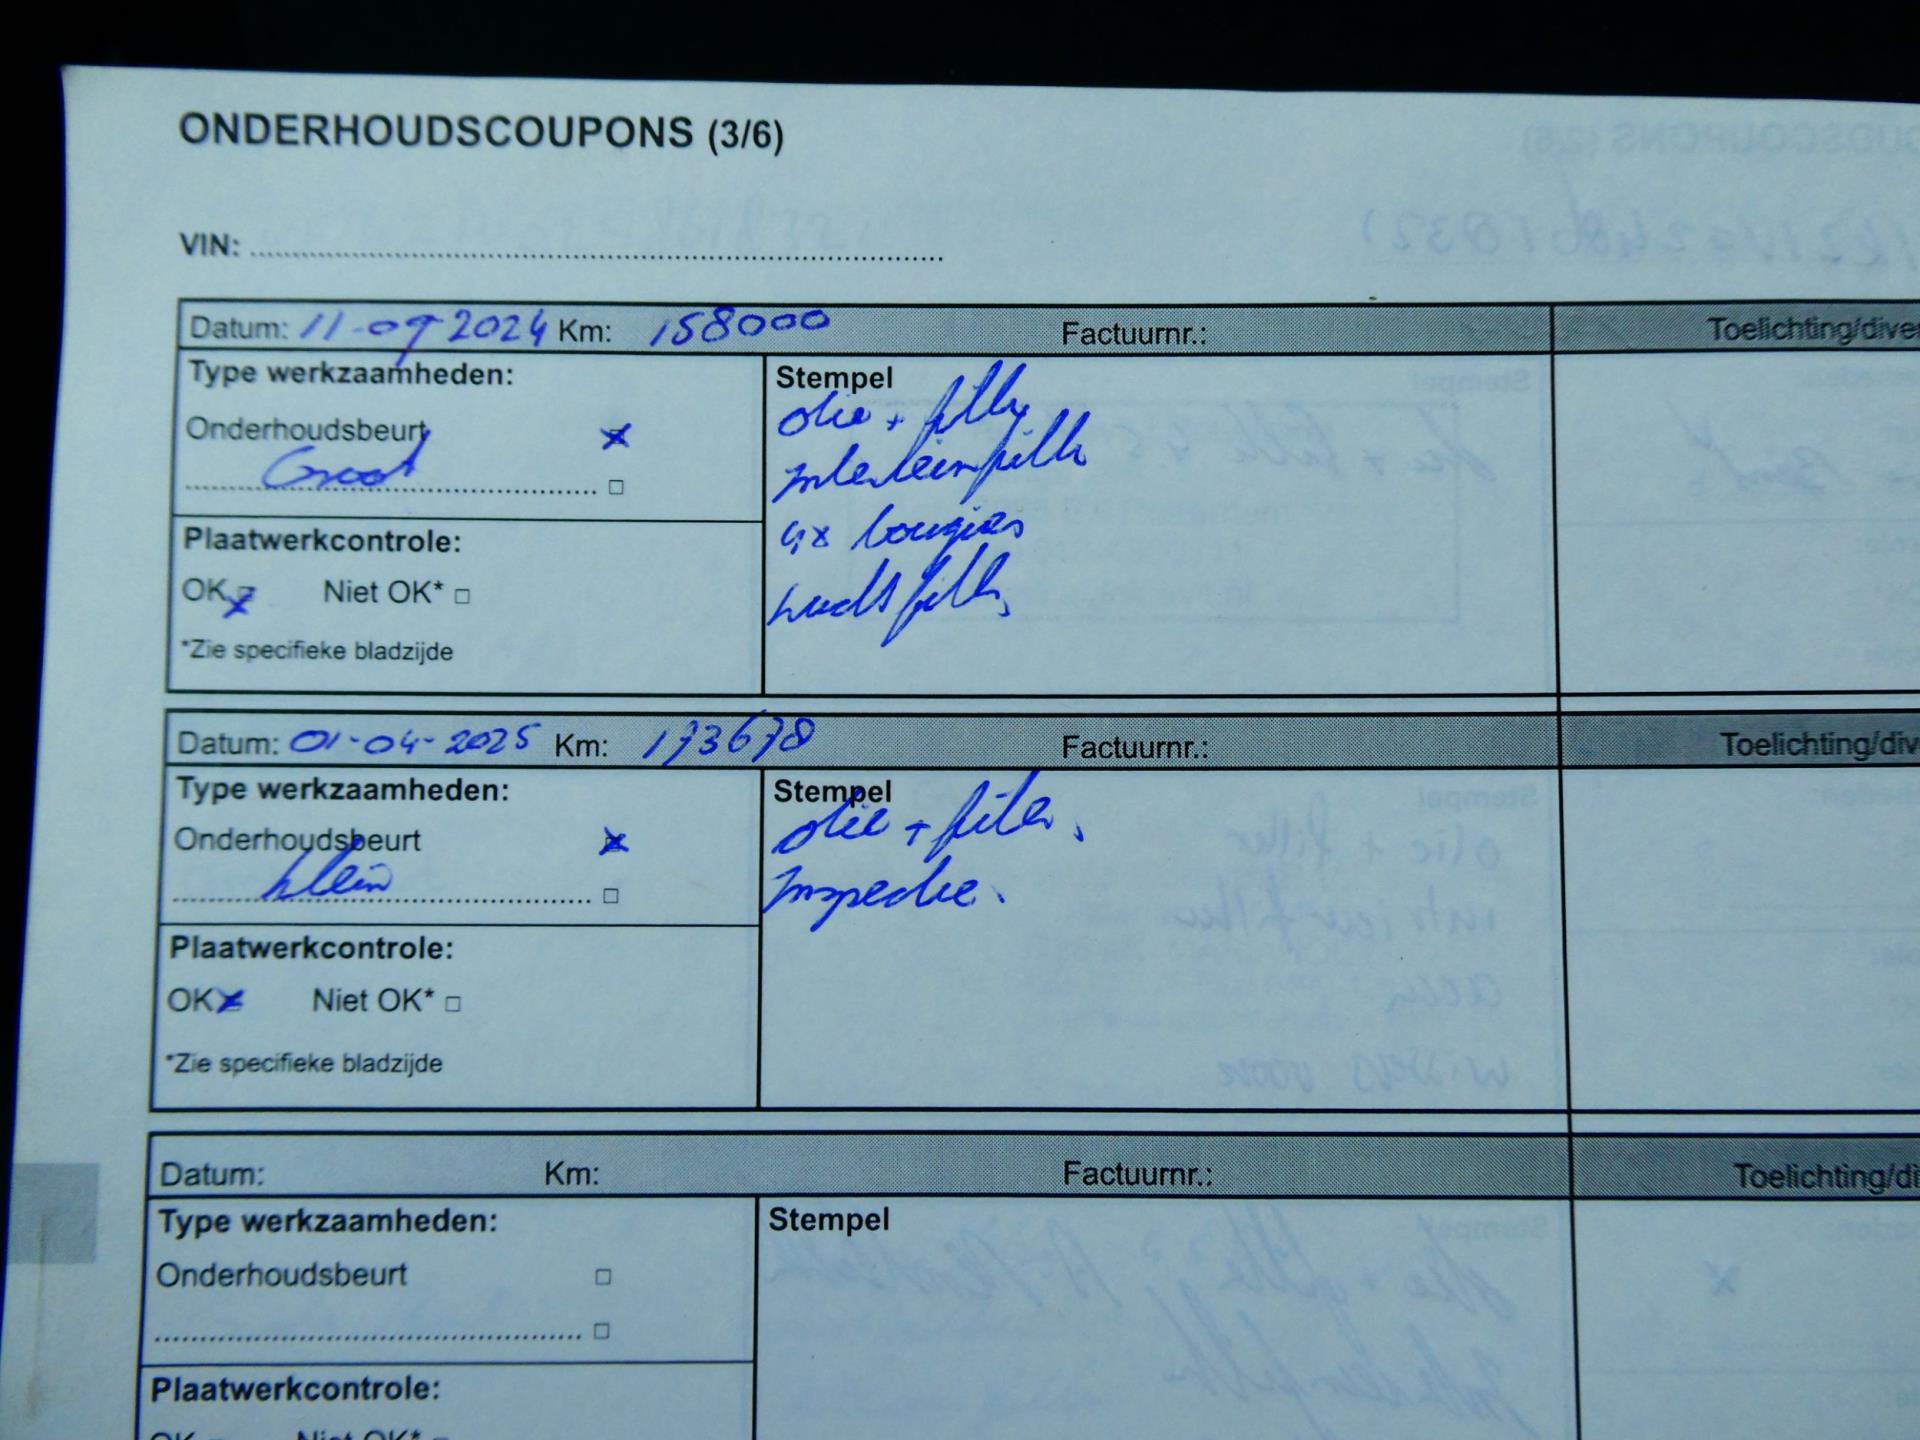 ONDERHOUDSCOUPONS (3/6)
VIN:
Datum: 11-09 2024 Km: 158000 Factuurnr.: Toelichting/dive
Type werkzaamheden:
Stempel
Onderhoudsbeurt
Groot
olie + filter
interieurfilter
4x bougies
luchtfilter
Plaatwerkcontrole:
OK Niet OK*
*Zie specifieke bladzijde
Datum: 01-04-2025 Km: 173678 Factuurnr.: Toelichting/div
Type werkzaamheden:
Stempel
Onderhoudsbeurt
klein
olie + filter.
Inspectie.
Plaatwerkcontrole:
OK Niet OK*
*Zie specifieke bladzijde
Datum: Km: Factuurnr.: Toelichting/di
Type werkzaamheden:
Stempel
Onderhoudsbeurt
Plaatwerkcontrole:
OK Niet OK*